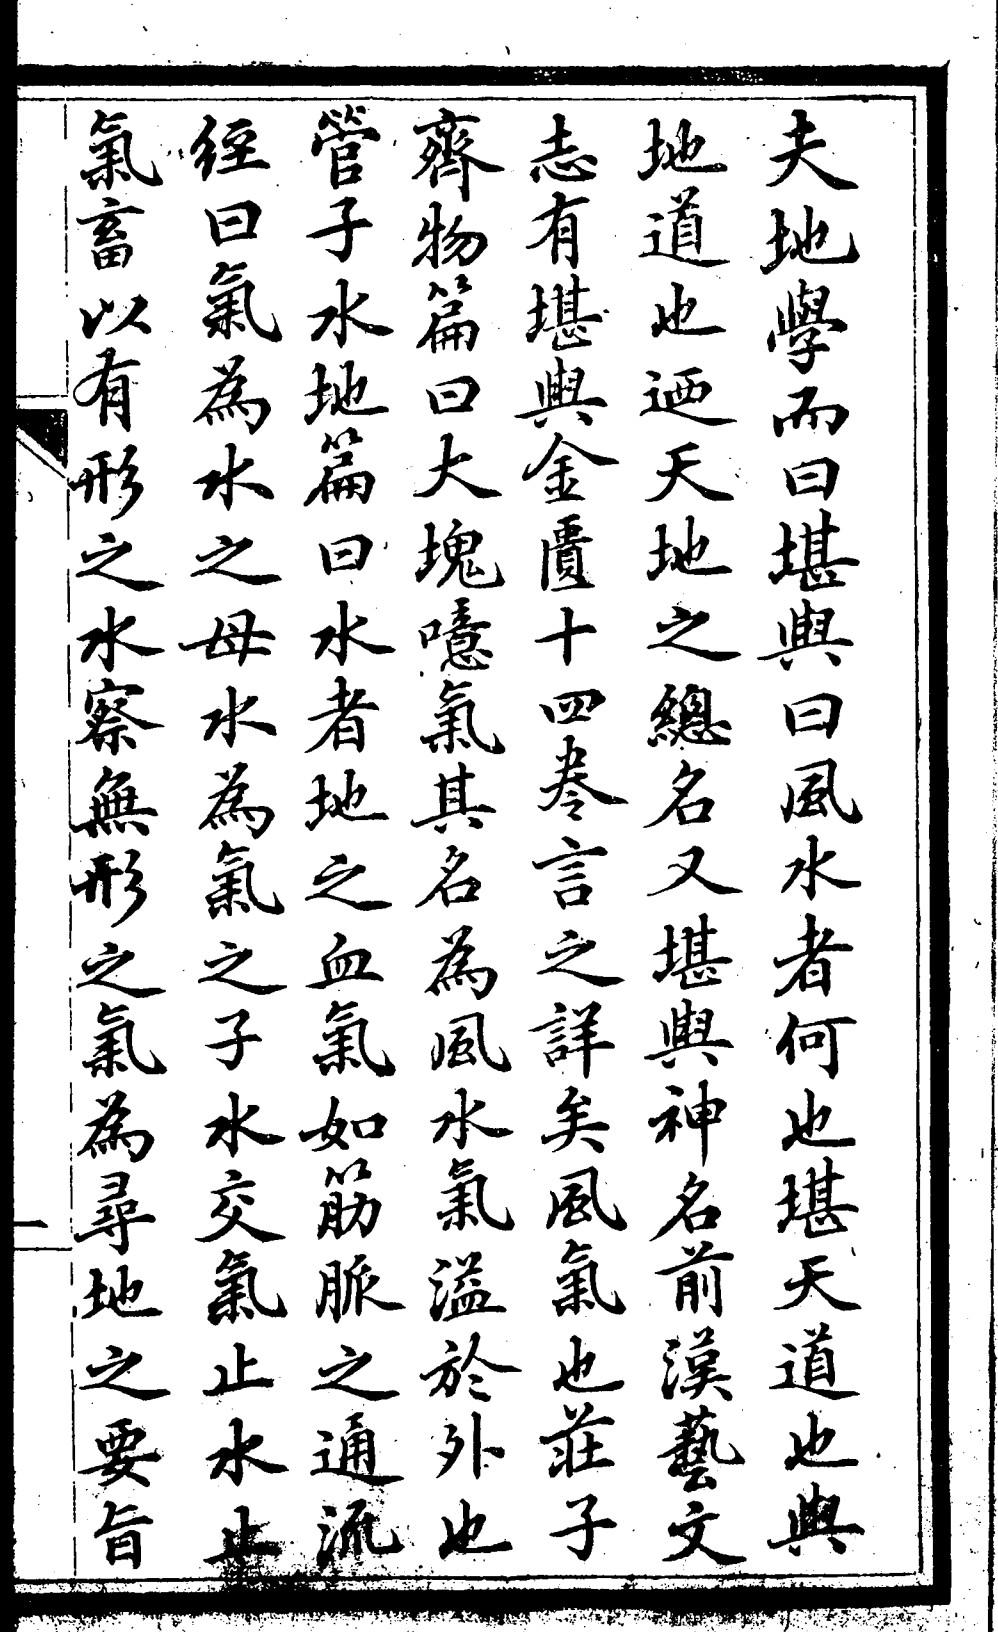 夫地學而曰堪輿曰風水者何也堪天道也輿
地道也迺天地之總名又堪輿神名前漢藝文
志有堪輿金匱十四卷言之詳矣風氣也莊子
齊物篇曰大塊噫氣其名為風水氣溢於外也
管子水地篇曰水者地之血氣如筋脈之通流
經曰氣為水之母水為氣之子水交氣止水止
氣畜以有形之水察無形之氣為尋地之要旨
一